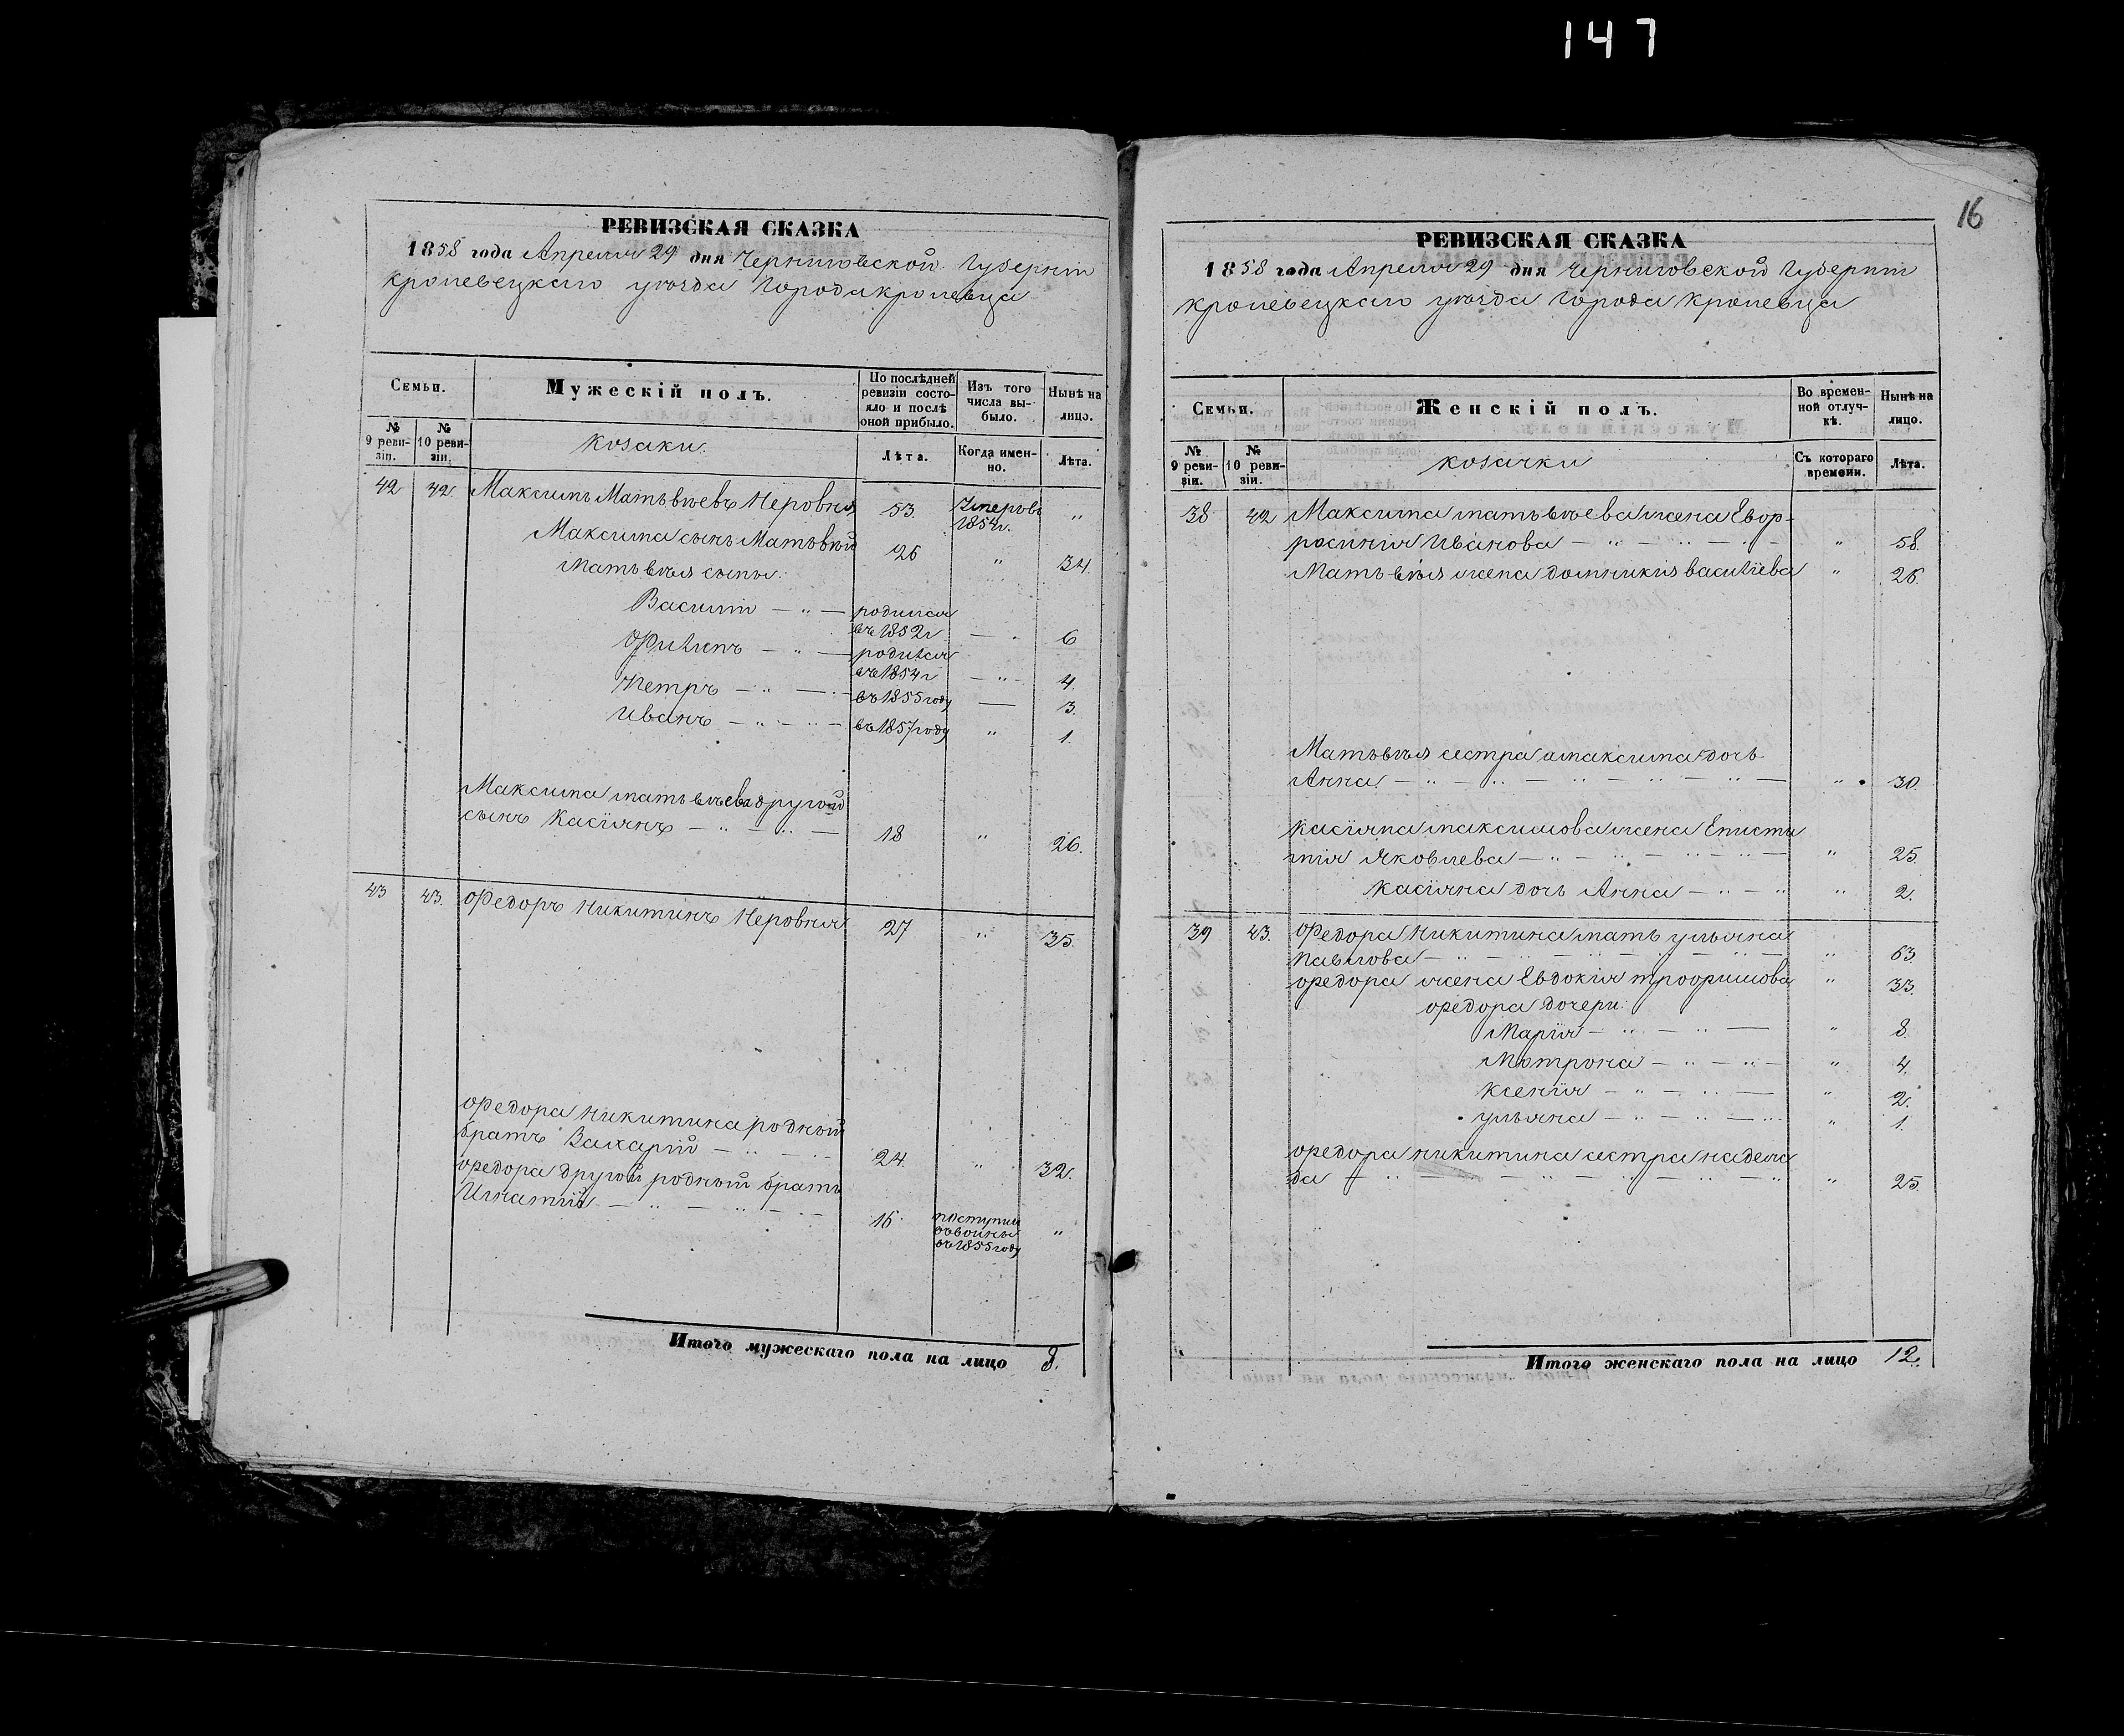 147
РЕВИЗСКАЯ СКАЗКА
1858 года Апреля 29 дня Черниговской Губернiи
Кролевецкаго уѣзда Города Кролевца
Семьи.
Мужескiй полъ.
По послѣдней ревизiи состояло и послѣ оной прибыло.
Изъ того числа выбыло.
Нынѣ на лицо.
№ 9 ревизiи.
№ 10 ревизiи.
козаки.
Лѣта.
Когда именно.
Лѣта.
42 42 Максимъ Матьвѣевъ Неровня 53 Умеръ въ 1854 г. "
Максима сынъ Матьвѣй 26 " 34.
Матьвѣя сыны:
Василiй — " — родился въ 1852 г — " 6
Филипъ — " — родился въ 1854 г — " — 4.
Петръ — " — въ 1855 году — 3.
Иванъ — " — " — въ 1857 году " 1.
Максима матьвѣева другой
сынъ Касiянъ — " — " — 18 " 26.
43 43. Федоръ Никитинъ Неровня 27 " 35.
Федора Никитина родный
братъ Захарiй — " — 24. " 32.
Федора другой родный братъ
Игнатiй — " — " — 16 поступил въ воины въ 1855 году "
Итого мужескаго пола на лицо 8.
16
РЕВИЗСКАЯ СКАЗКА
1858 года Апреля 29 дня Черниговской Губернiи
Кролевецкаго уѣзда Города Кролевца
Семьи.
Женскiй полъ.
Во временной отлучкѣ.
Нынѣ на лицо.
№ 9 ревизiи.
№ 10 ревизiи.
козачки
Съ котораго времени.
Лѣта.
38 42 Максима матьвѣева жена Евфро-
синiя Иванова — " — " — " 58.
Матьвѣя жена Домникiя василiева " 26.
Матьвѣя сестра а максима дочь
Анна — " — " — " — " — " — " 30.
Касiяна максимова жена Еписти
мiя Яковлева — " — " — " — " 25.
Касiяна дочь Анна — " — " " 2.
39 43. Федора Никитина мать ульяна
Павлова — " — " — " — " — " 63
Федора жена Евдокiя трофимова " 33.
Федора дочери:
Марiя — " — " — " 8.
Мотрона — " — " — " 4.
Ксенiя — " — " — " 2.
ульяна — " — " — " 1.
Федора никитина сестра надеж
да — " — " — " — " — " 25.
Итого женскаго пола на лицо 12.